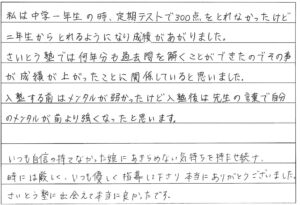 私は中学一年生の時、定期テストで300点をとれなかったけど
二年生からとれるようになり成績があがりました。
さいとう塾では何年分も過去問を解くことができたのでその事
が成績が上がったことに関係していると思いました。
入塾する前はメンタルが弱かったけど入塾後は先生の言葉で自分
のメンタルが前より強くなったと思います。
いつも自信の持てなかった娘にあきらめない気持ちを持たせ続け、
時には厳しく、いつも優しく指導して下さり本当にありがとうございました。
さいとう塾に出会えて本当に良かったです。